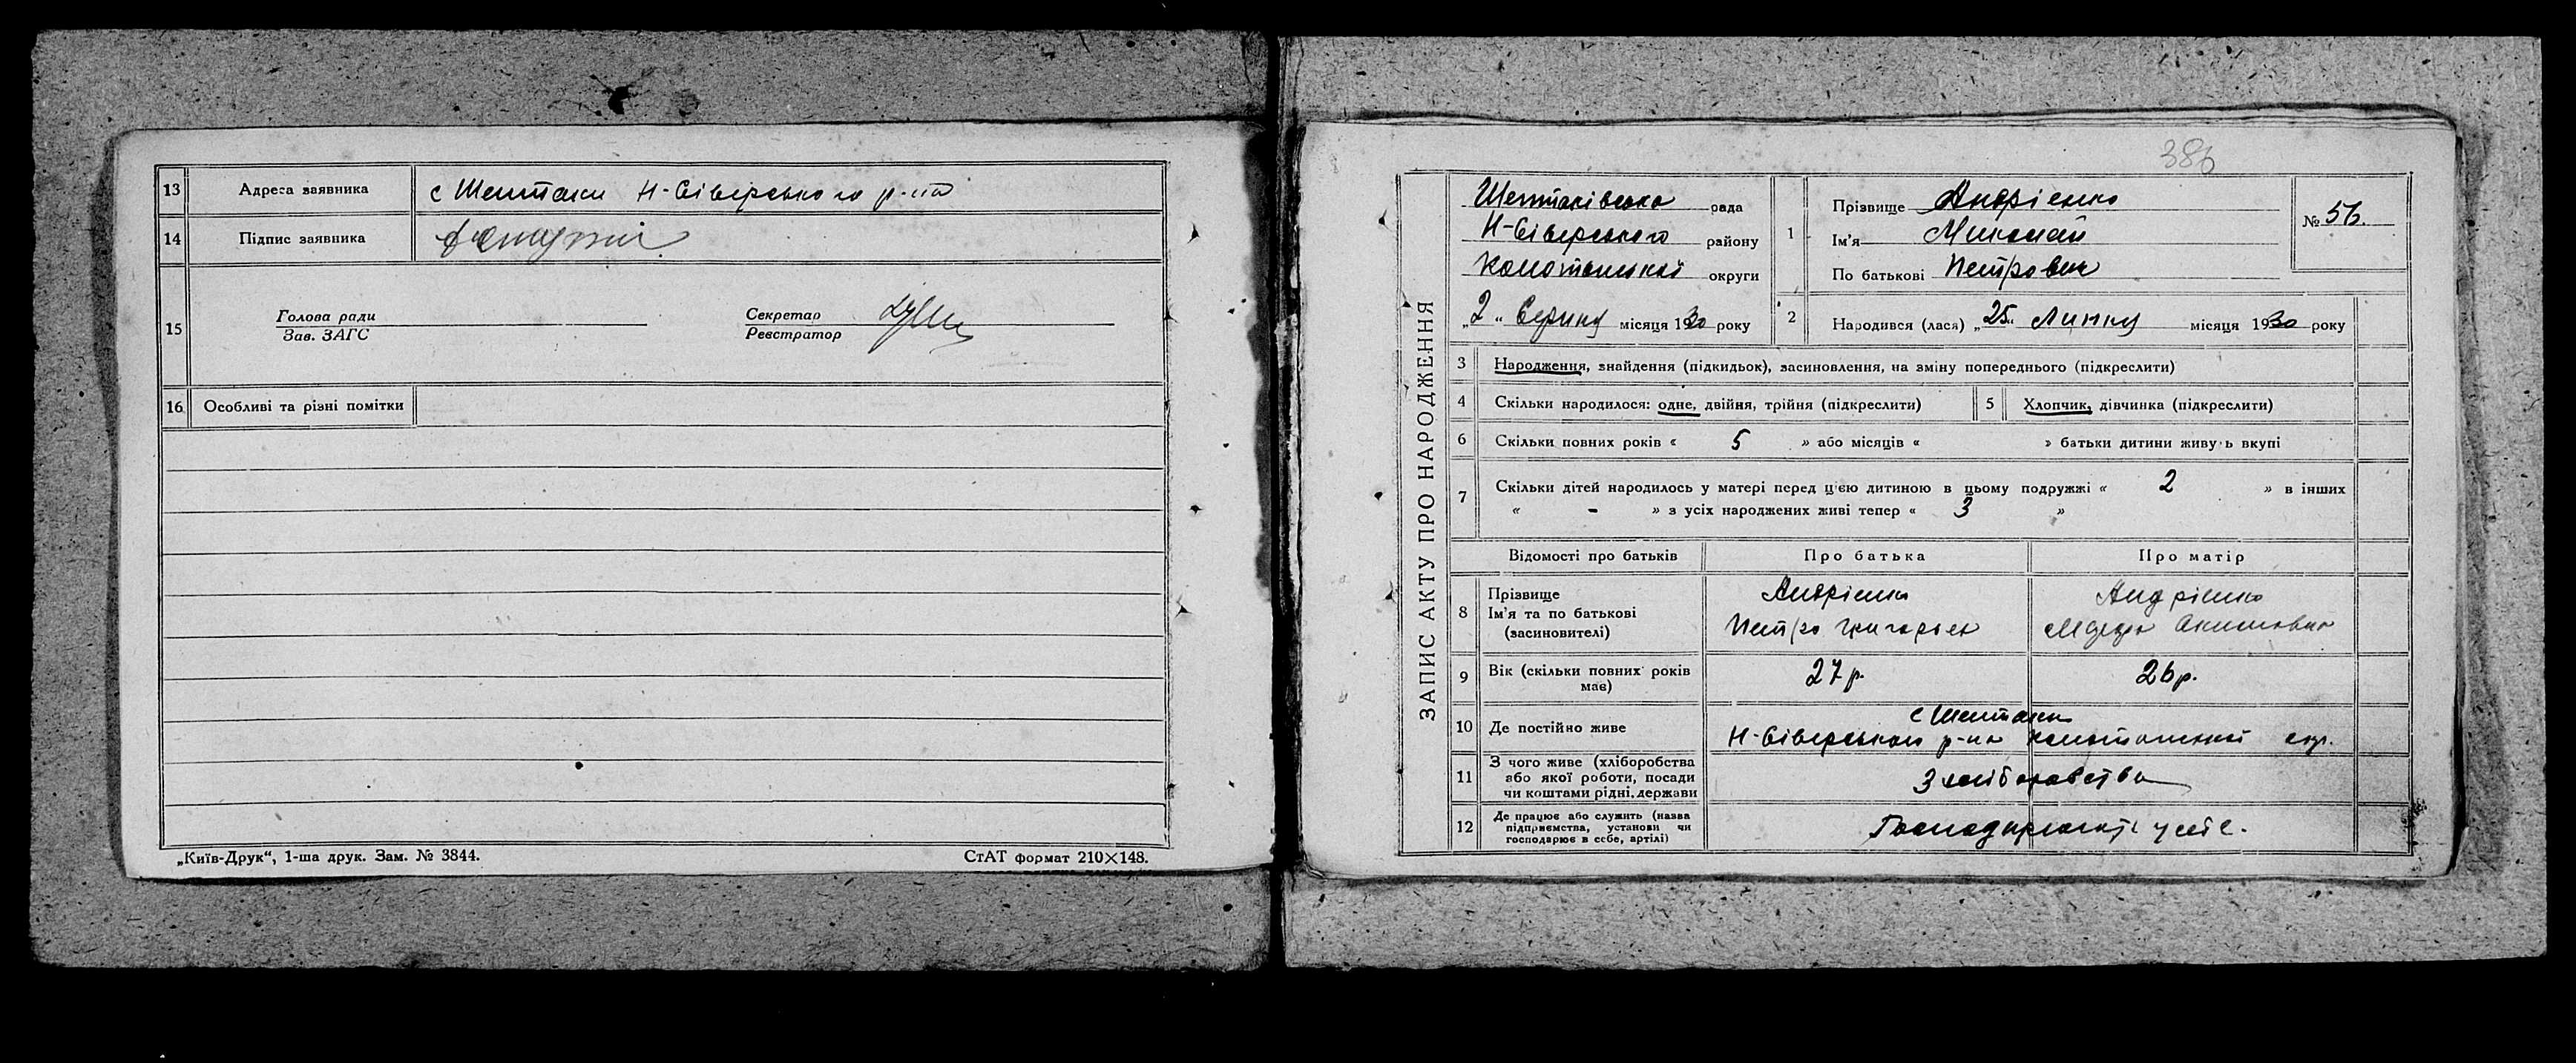 13 Адреса заявника с Шептаки Н-Сіверського р-на
14 Підпис заявника
15 Голова ради
Зав. ЗАГС
Секретар
Реєстратор
16 Особливі та різні помітки
„Київ-Друк“, 1-ша друк. Зам. № 3844.
СтАТ формат 210×148.
386
ЗАПИС АКТУ ПРО НАРОДЖЕННЯ
Шептаківська рада
Н-Сіверського району
Конотопської округи
„2“ Серпня місяця 1930 року
1 Прізвище Андрієнко
Ім'я Миколай
По батькові Петрович
№ 56.
2 Народився (лася) „25“ Липня місяця 1930 року
3 Народження, знайдення (підкидьок), засиновлення, на зміну попереднього (підкреслити)
4 Скільки народилося: одне, двійня, трійня (підкреслити)
5 Хлопчик, дівчинка (підкреслити)
6 Скільки повних років « 5 » або місяців « » батьки дитини живуть вкупі
7 Скільки дітей народилось у матері перед цією дитиною в цьому подружжі « 2 » в інших
« - » з усіх народжених живі тепер « 3 »
Відомості про батьків Про батька Про матір
8 Прізвище
Ім'я та по батькові
(засиновителі)
Андрієнко
Петро Григоров
Андрієнко
Акимовна
9 Вік (скільки повних років
має)
27 р.
26 р.
10 Де постійно живе
с Шептаки
Н-Сіверського р-на Конотопської окр.
11 З чого живе (хліборобства
або якої роботи, посади
чи коштами рідні, держави
З хліборобства
12 Де працює або служить (назва
підприємства, установи чи
господарює в себе, артілі)
Господарюють у себе.